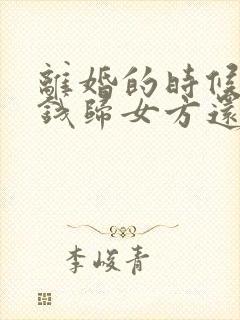 離婚的時候
錢歸女方還
李峻青